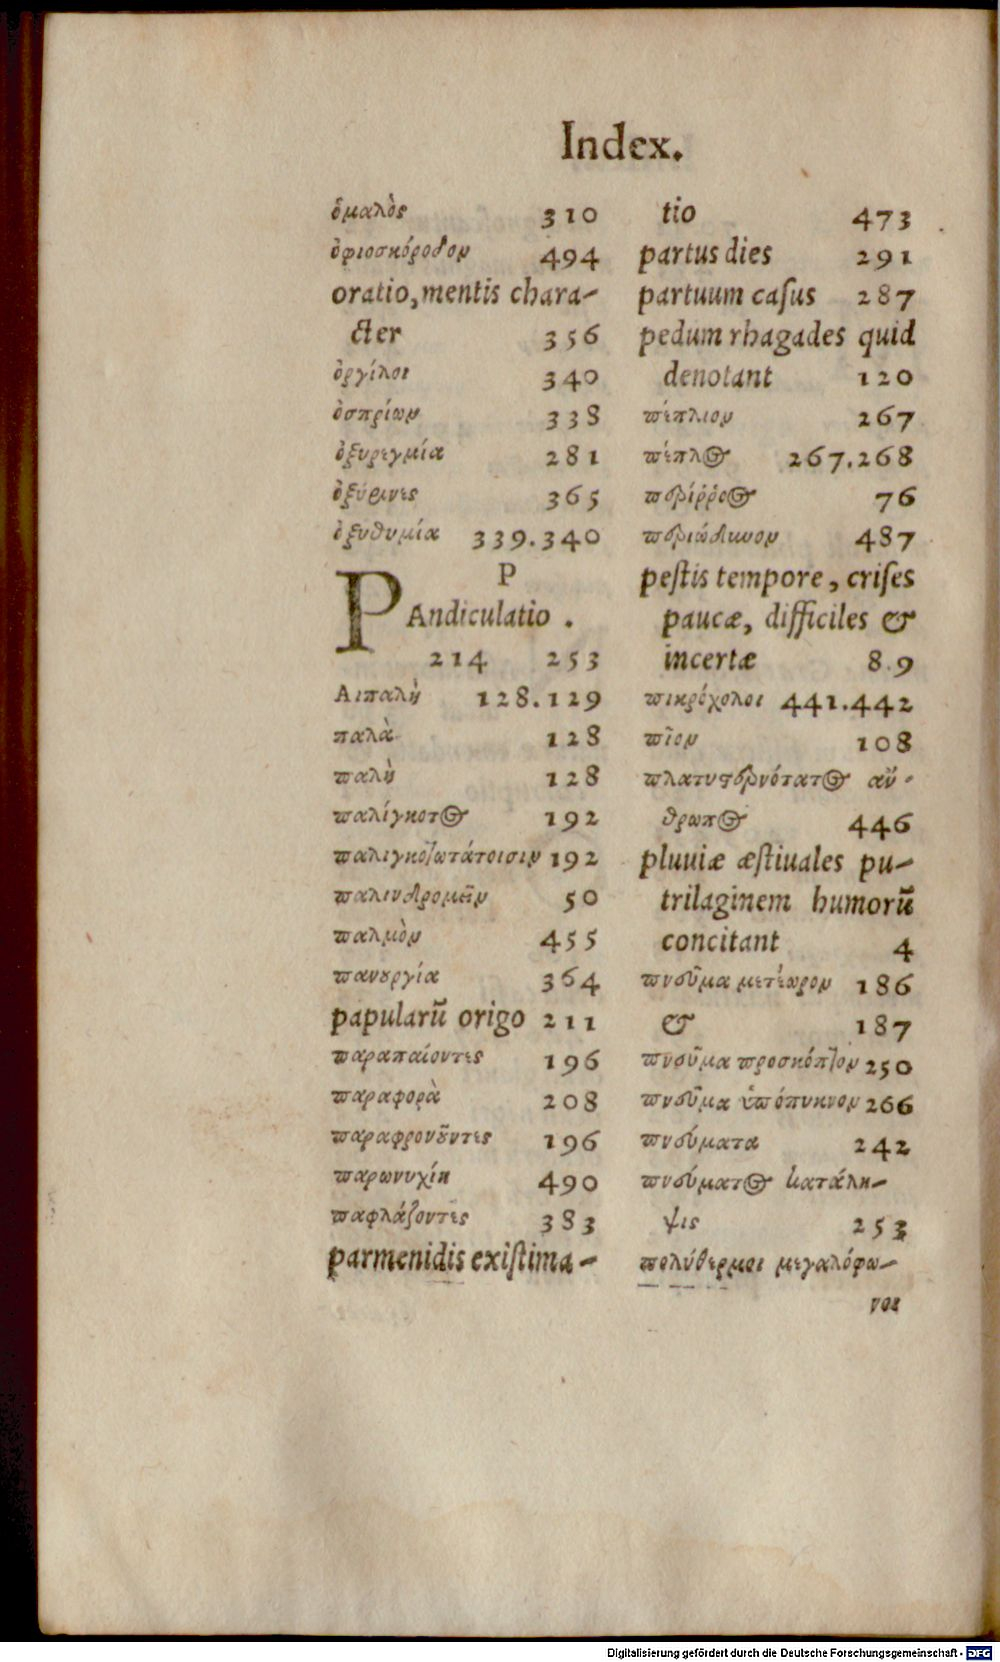 Index.
ὁμαλὸς 310
ὀφιοσκόροδον 494
oratio, mentis chara-
cter 356
ὀργίλοι 340
ὀσπρίων 338
ὀξυρεγμία 281
ὀξύρινες 365
ὀξυθυμία 339.340
P
PAndiculatio .
214 253
Αιπαλὴ 128.129
παλὰ 128
παλὴ 128
παλίγκοτος 192
παλιγκοτωτάτοισιν 192
παλινδρομεῖν 50
παλμὸν 455
πανουργία 364
papularū origo 211
παραπαίοντες 196
παραφορὰ 208
παραφρονοῦντες 196
παρωνυχίη 490
παφλάζοντες 383
parmenidis existima-
tio 473
partus dies 291
partuum casus 287
pedum rhagades quid
denotant 120
πέπλιον 267
πέπλος 267.268
περίῤῥος 76
περιώδυνον 487
pestis tempore, crises
paucæ, difficiles &
incertæ 8.9
πικρόχολοι 441.442
πῖον 108
πλατυστερνότατος ἄν-
θρωπος 446
pluuiæ æstiuales pu-
trilaginem humorū
concitant 4
πνεῦμα μετέωρον 186
& 187
πνεῦμα προσκόπτον 250
πνεῦμα ὑπόπυκνον 266
πνεύματα 242
πνεύματος κατάλη-
ψις 253
πολύθερμοι μεγαλόφω-
νοι
Digitalisierung gefördert durch die Deutsche Forschungsgemeinschaft - DFG